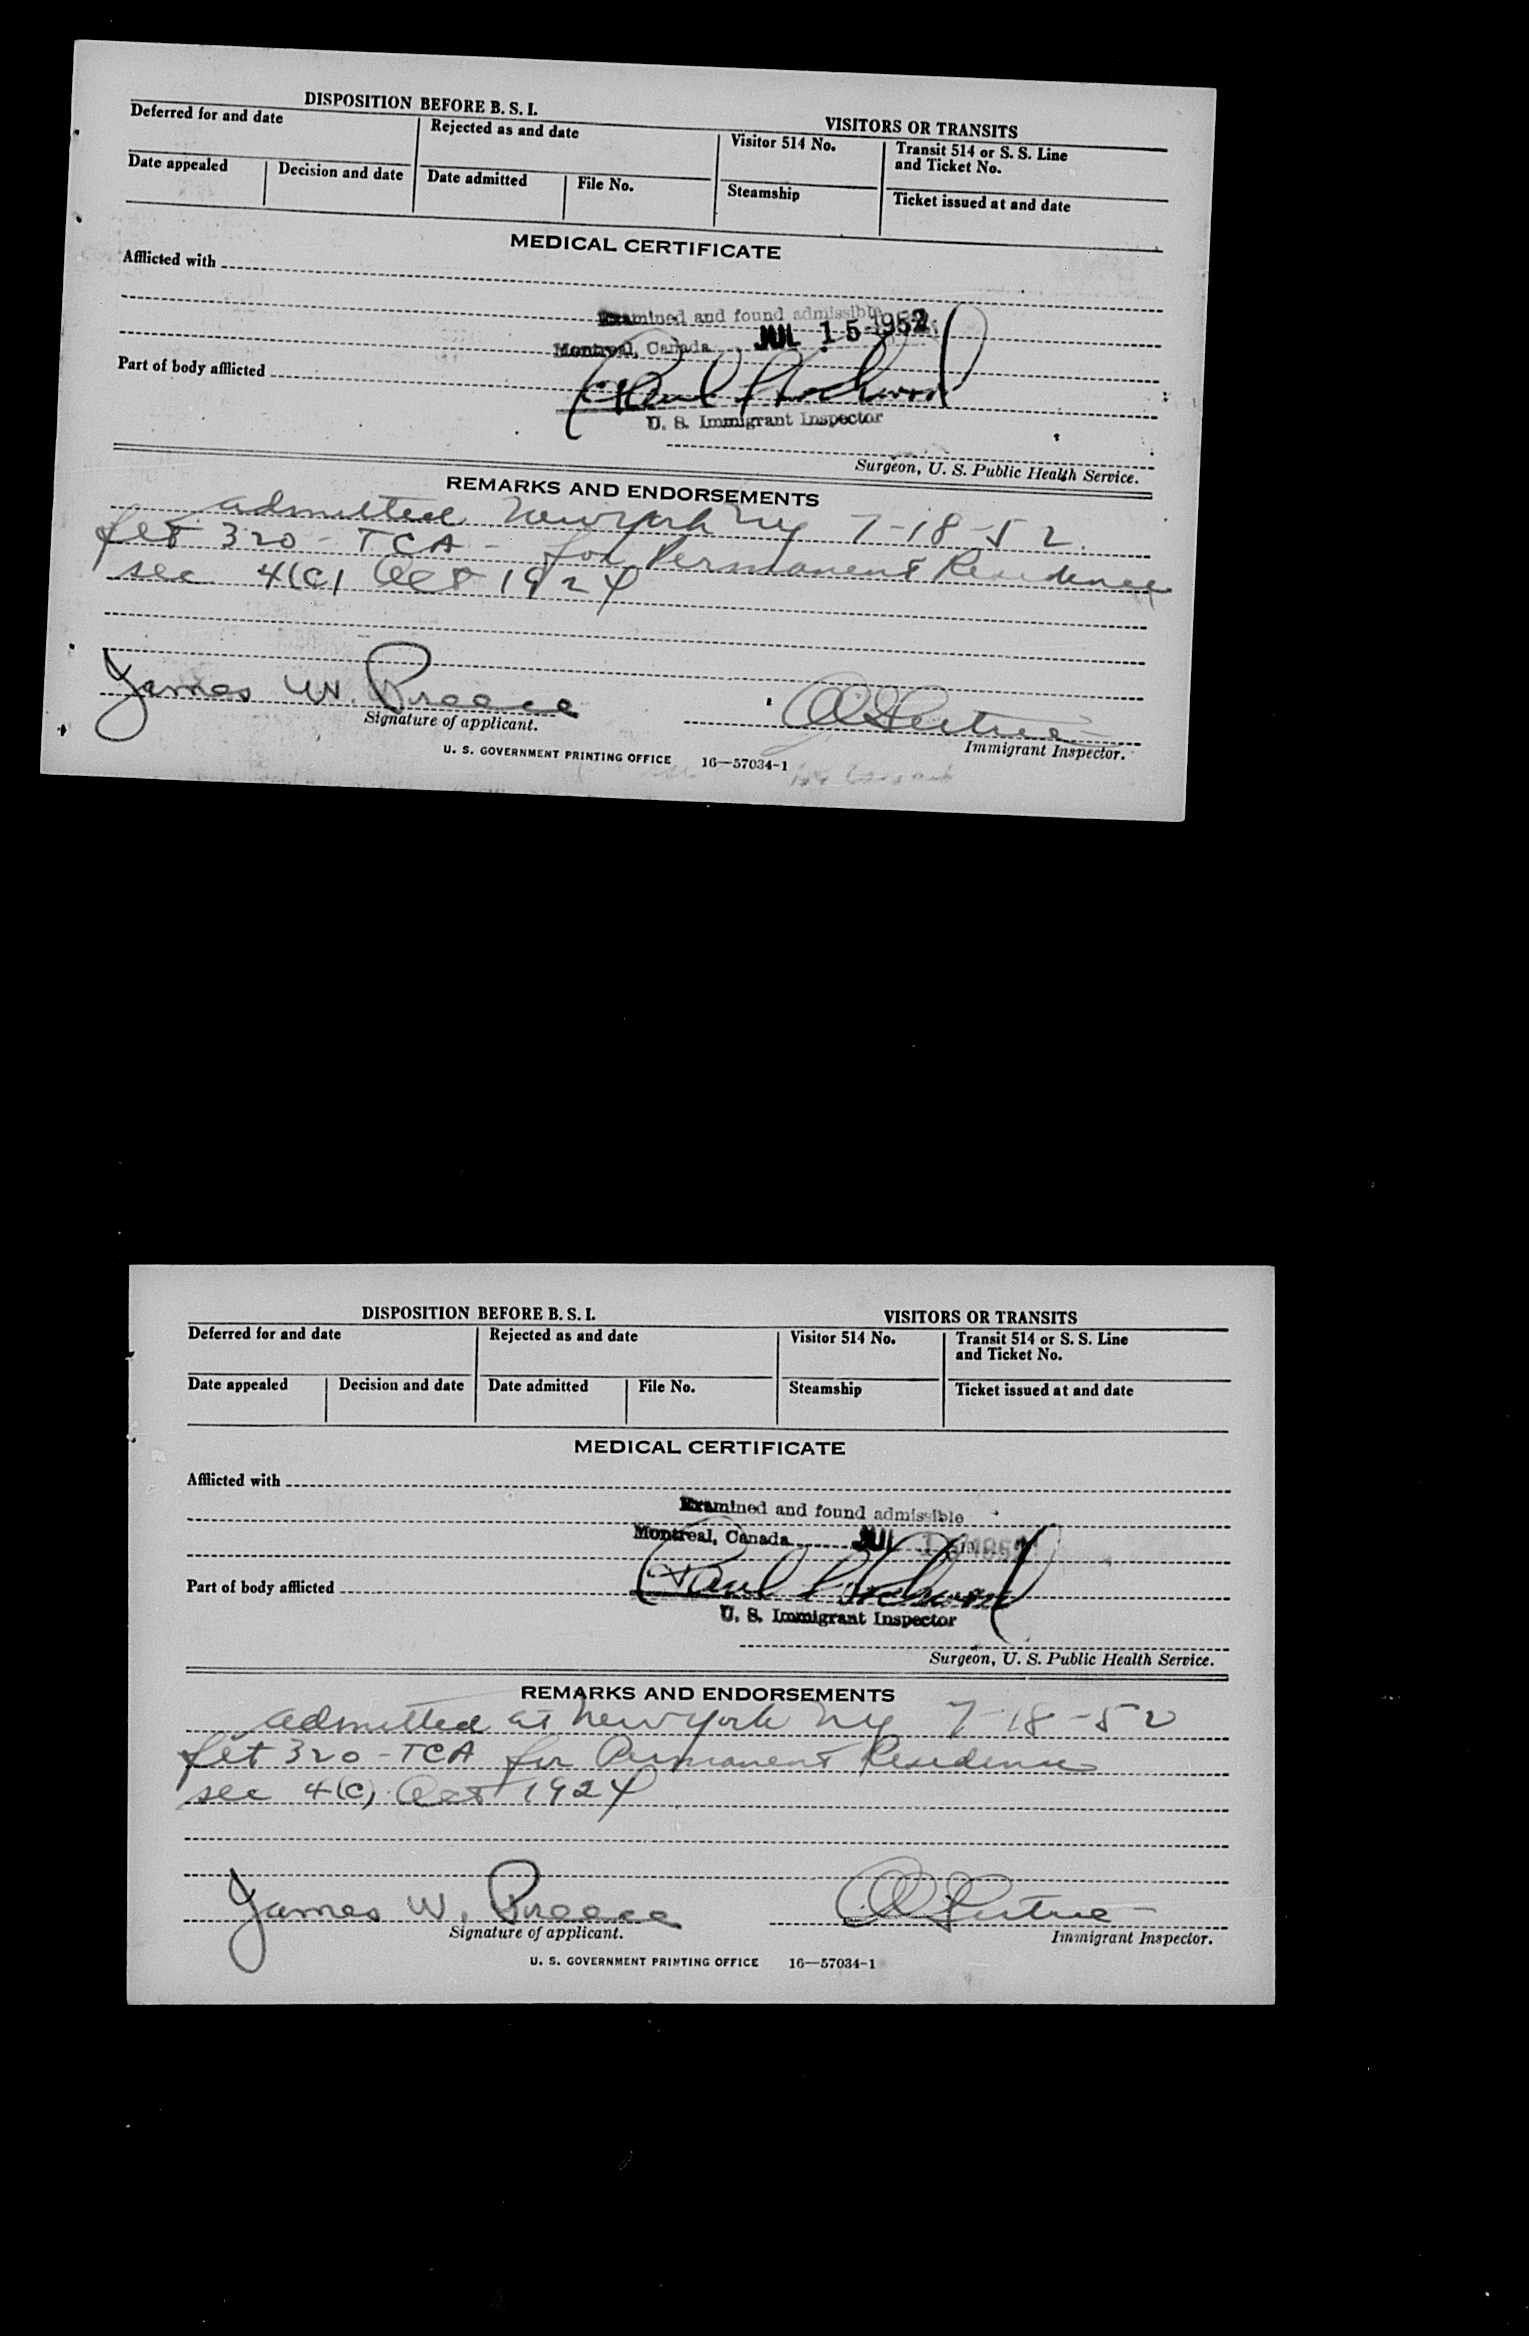 DISPOSITION BEFORE B. S. I.
VISITORS OR TRANSITS
Deferred for and date
Rejected as and date
Visitor 514 No.
Transit 514 or S. S. Line
and Ticket No.
Date appealed
Decision and date
Date admitted
File No.
Steamship
Ticket issued at and date
MEDICAL CERTIFICATE
Afflicted with
Examined and found admissible
Montreal, Canada JUL 15 1952
Part of body afflicted
Paul
U. S. Immigrant Inspector
Surgeon, U. S. Public Health Service.
REMARKS AND ENDORSEMENTS
admitted New York NY 7-18-52.
flt 320 - TCA - for Permanent Residence
sec 4(c) Act 1924
James W. Preece
Signature of applicant.
Immigrant Inspector.
U. S. GOVERNMENT PRINTING OFFICE 16—57034-1
DISPOSITION BEFORE B. S. I.
VISITORS OR TRANSITS
Deferred for and date
Rejected as and date
Visitor 514 No.
Transit 514 or S. S. Line
and Ticket No.
Date appealed
Decision and date
Date admitted
File No.
Steamship
Ticket issued at and date
MEDICAL CERTIFICATE
Afflicted with
Examined and found admissible
Montreal, Canada JUL 1952
Part of body afflicted
Paul
U. S. Immigrant Inspector
Surgeon, U. S. Public Health Service.
REMARKS AND ENDORSEMENTS
admitted at New York NY 7-18-52
flt 320 - TCA for Permanent Residence
sec 4(c) Act 1924
James W. Preece
Signature of applicant.
Immigrant Inspector.
U. S. GOVERNMENT PRINTING OFFICE 16—57034-1